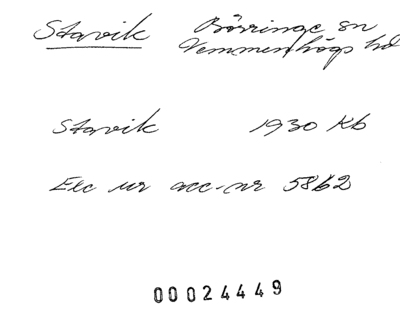 Stavik Börringe sn
Vemmenhögs hd
Stavik 1930 Kb
Exc ur acc-nr 5862
00024449